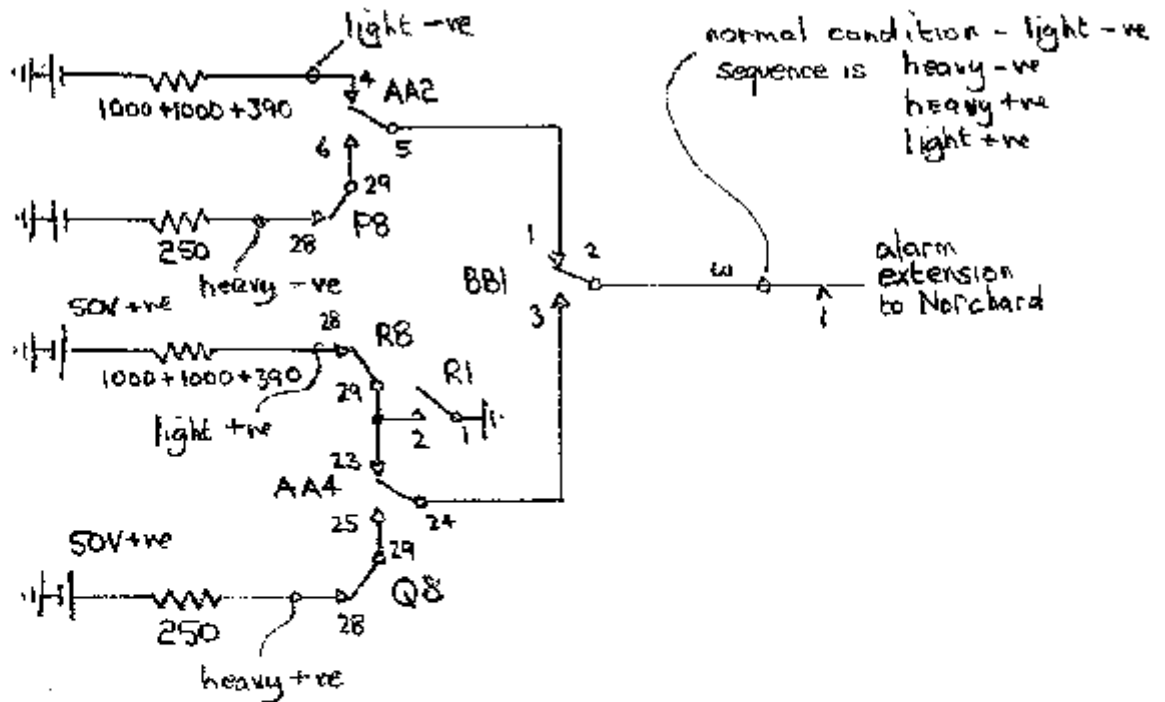 light -ve
normal condition - light -ve
sequence is heavy -ve
heavy +ve
light +ve
1000+1000+390
4
AA2
6
5
29
28
P8
250
heavy -ve
1
2
BB1
3
alarm
extension
to Norchard
1
50V +ve
28
R8
R1
1000+1000+390
29
2
1
light +ve
23
AA4
24
25
50V +ve
29
Q8
28
250
heavy +ve